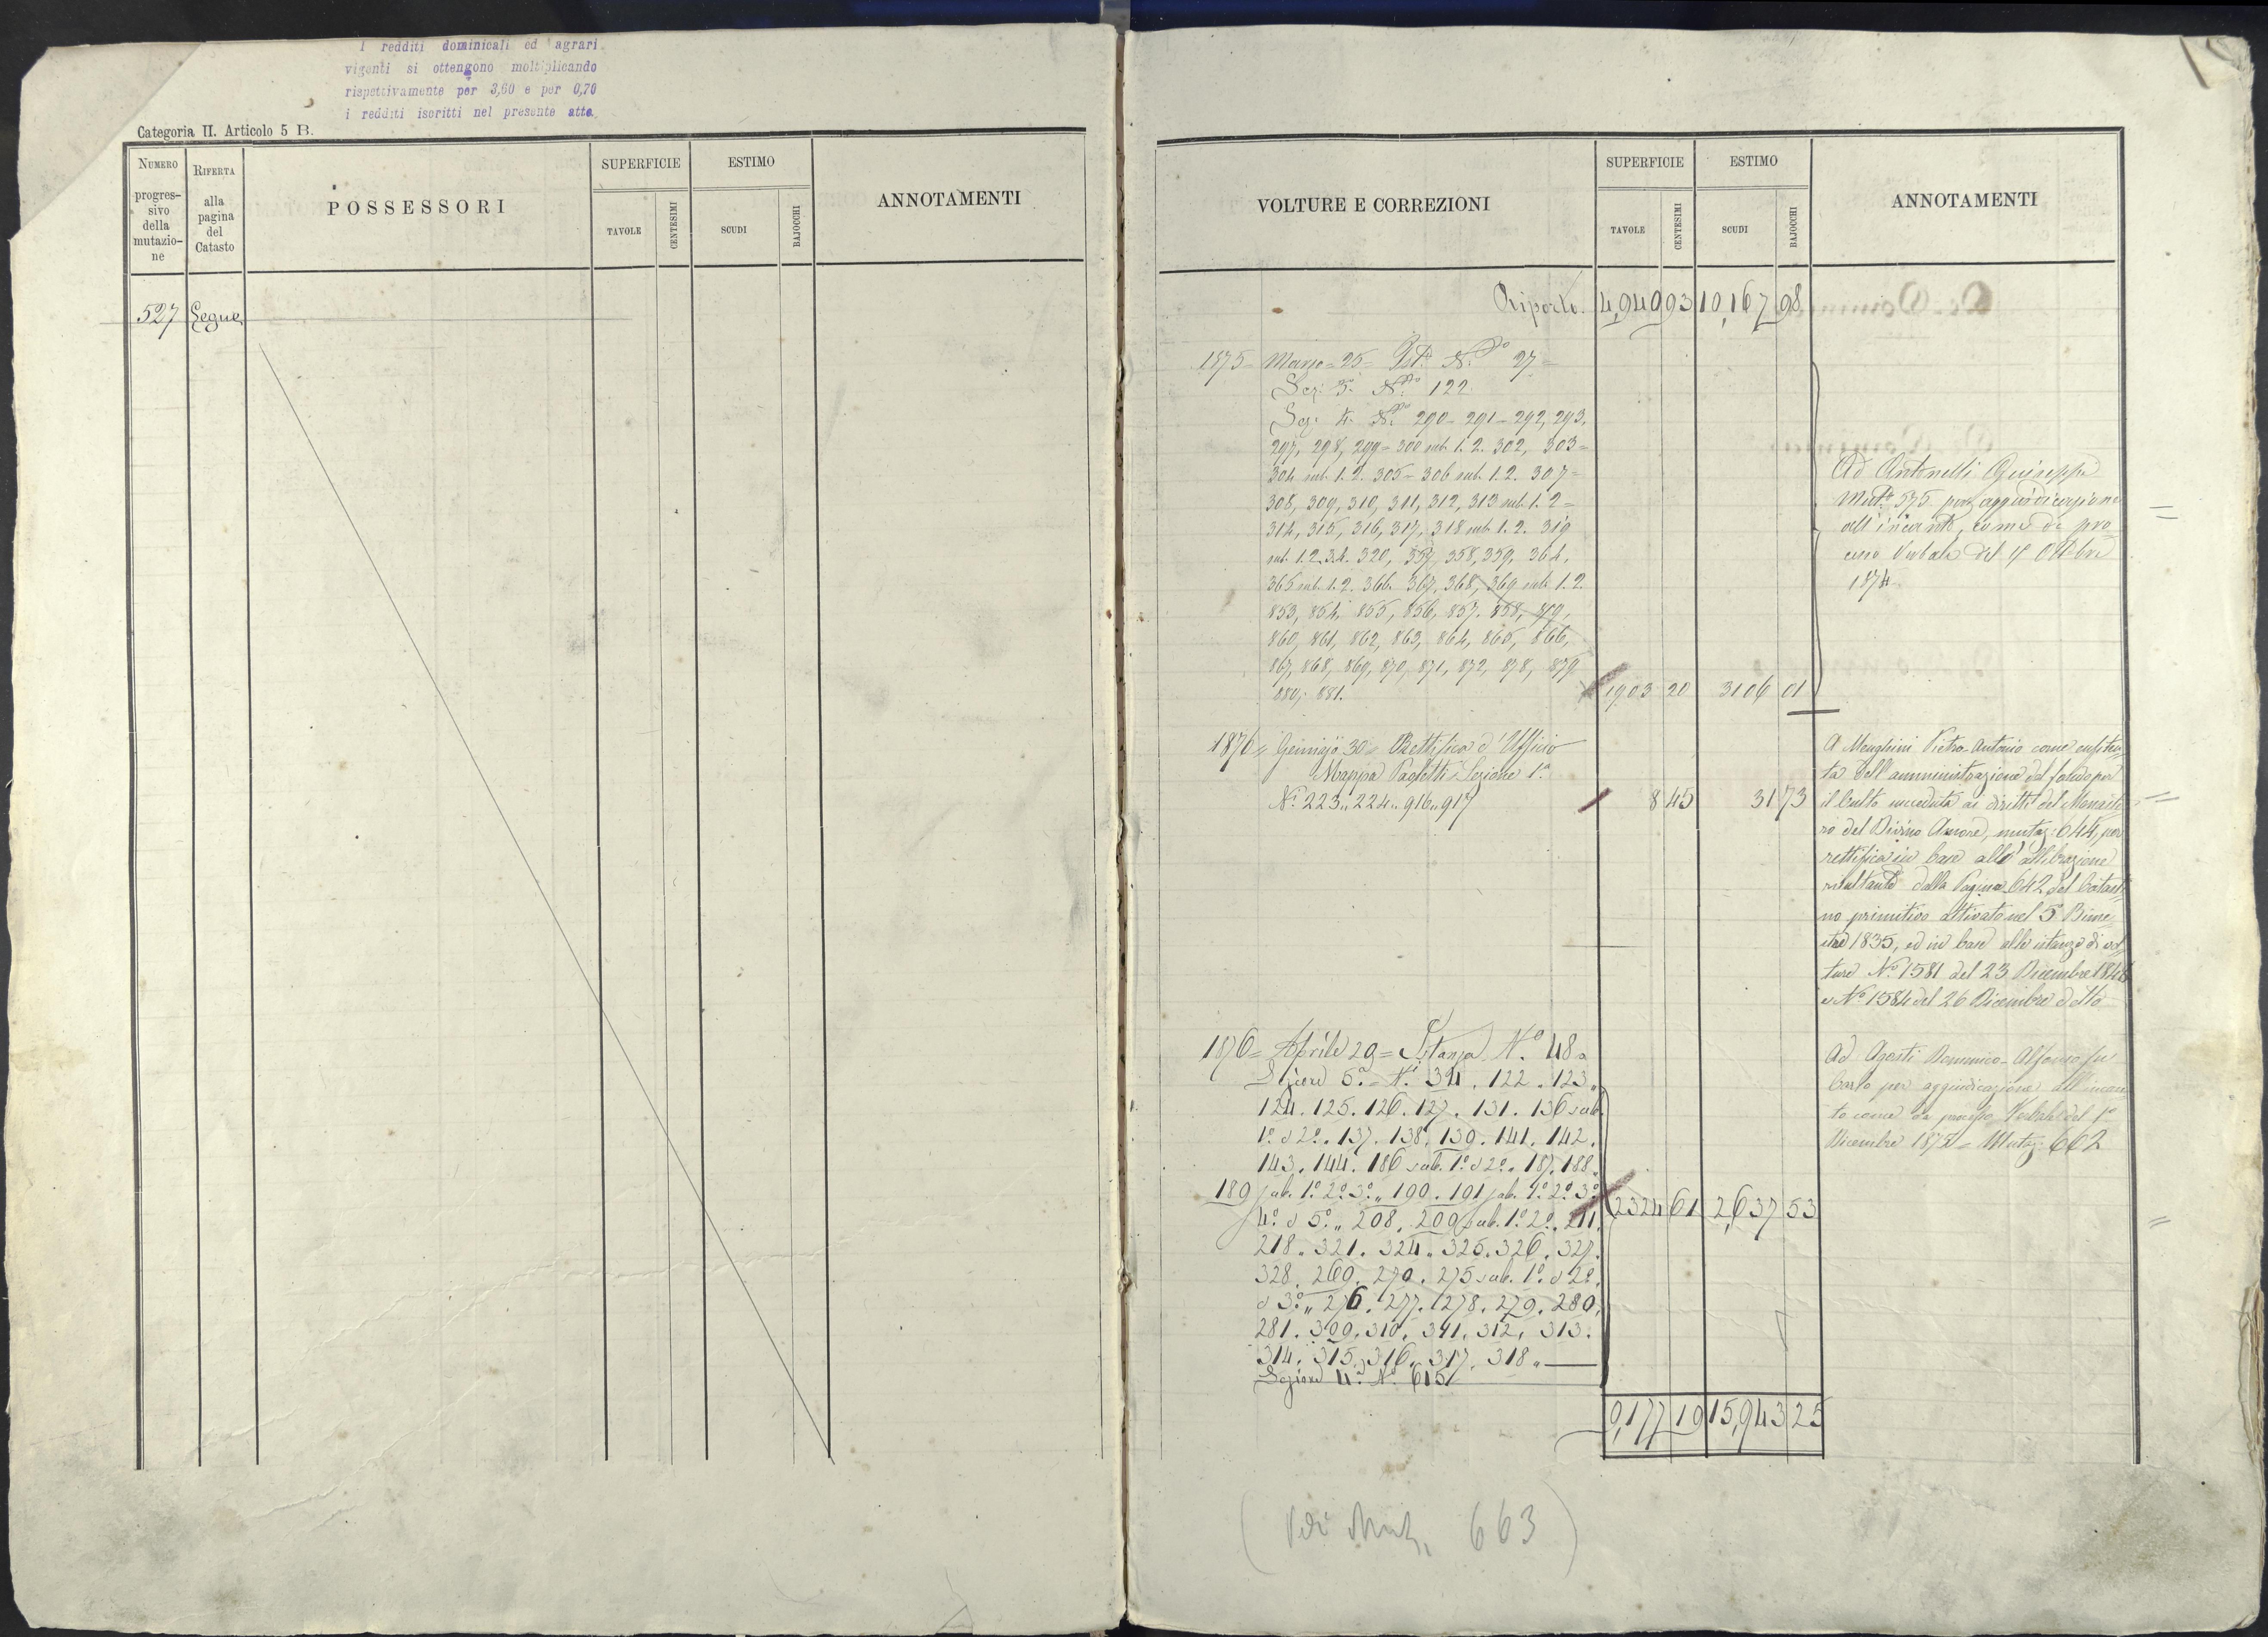 I redditi dominicali ed agrari
vigenti si ottengono moltiplicando
rispettivamente per 3,60 e per 0,70
i redditi iscritti nel presente atto.
Categoria II. Articolo 5 B.
NUMERO progres-sivo della mutazio-ne
RIFERTA alla pagina del Catasto
POSSESSORI
SUPERFICIE
TAVOLE
CENTESIMI
ESTIMO
SCUDI
BAJOCCHI
ANNOTAMENTI
527 Segue
VOLTURE E CORREZIONI
SUPERFICIE
TAVOLE
CENTESIMI
ESTIMO
SCUDI
BAJOCCHI
ANNOTAMENTI
Riporto. 4,940 93 10,167 98
1875 = Marzo = 25 = Ist. N.º 27 =
Sez: 5ª N.º 122.
Sez: 4ª N.i 290 - 291 - 292, 293,
297, 298, 299 = 300 sub. 1. 2. 302, 303 =
304 sub. 1. 2. 305 = 306 sub. 1. 2. 307 =
308, 309, 310, 311, 312, 313 sub. 1. 2 =
314, 315, 316, 317, 318 sub. 1. 2. 319
sub. 1. 2. 3. 4. 320, 357, 358, 359, 364,
365 sub. 1. 2. 366. 367, 368, 369 sub. 1. 2.
853, 854, 855, 856, 857. 858, 859,
860, 861, 862, 863, 864, 865, 866,
867, 868, 869, 870, 871, 872, 878, 879
880, 881. 1903 20 3106 01
Ad Antonelli Giuseppe
Mut.e 575 per aggiudicazione
all'incanto, come da pro
cesso Verbale del Ottobre
1874.
1876 = Gennajo 30 = Rettifica d'Ufficio
Mappa Pagletti = Sezione 1.ª
N.i 223 „ 224 „ 916 „ 917 8 45 31 73
A Menghini Pietro Antonio come enfiteu=
ta dell'amministrazione del fondo per
il Culto succeduta ai diritti del Monaste=
ro del Divino Amore, mutaz: 644, per
rettifica in base all'allibrazione
risultante dalla Pagina 642 del Catasti=
no primitivo attivato nel 5º Bime=
stre 1835, ed in base alle istanze di vol=
ture N.º 1581 del 23 Dicembre 1846
e N.º 1584 del 26 Dicembre detto
1876 = Aprile 29 = Istanza N.º 48 =
Sezione 5.ª = N.i 34 . 122 . 123 „
124 . 125 . 126 . 127 . 131 . 136 sub.
1.º e 2.º . 137 . 138 . 139 . 141 . 142 .
143 . 144 . 186 sub. 1.º e 2.º . 187 . 188 „
189 sub. 1.º 2.º 3.º „ 190 . 191 sub. 1.º 2.º 3.º
4.º e 5.º „ 208 . 209 sub. 1.º 2.º . 211 . 2324 61 2,637 53
218 . 321 . 324 „ 325 . 326 . 327 .
328 . 269 . 270 . 275 sub. 1.º e 2.º .
e 3.º „ 276 . 277 . 278 . 279 . 280 .
281 . 309 . 310 . 311 . 312 . 313 .
314 . 315 . 316 . 317 . 318 „
Sezione 4.ª N.º 615
Ad Agosti Domenico = Alfonso fu
Carlo per aggiudicazione all'incan
to come da processo Verbale del 1.º
Dicembre 1875 = Mutaz: 662
9,177 19 15,943 25
( Vedi Mutaz. 663 )